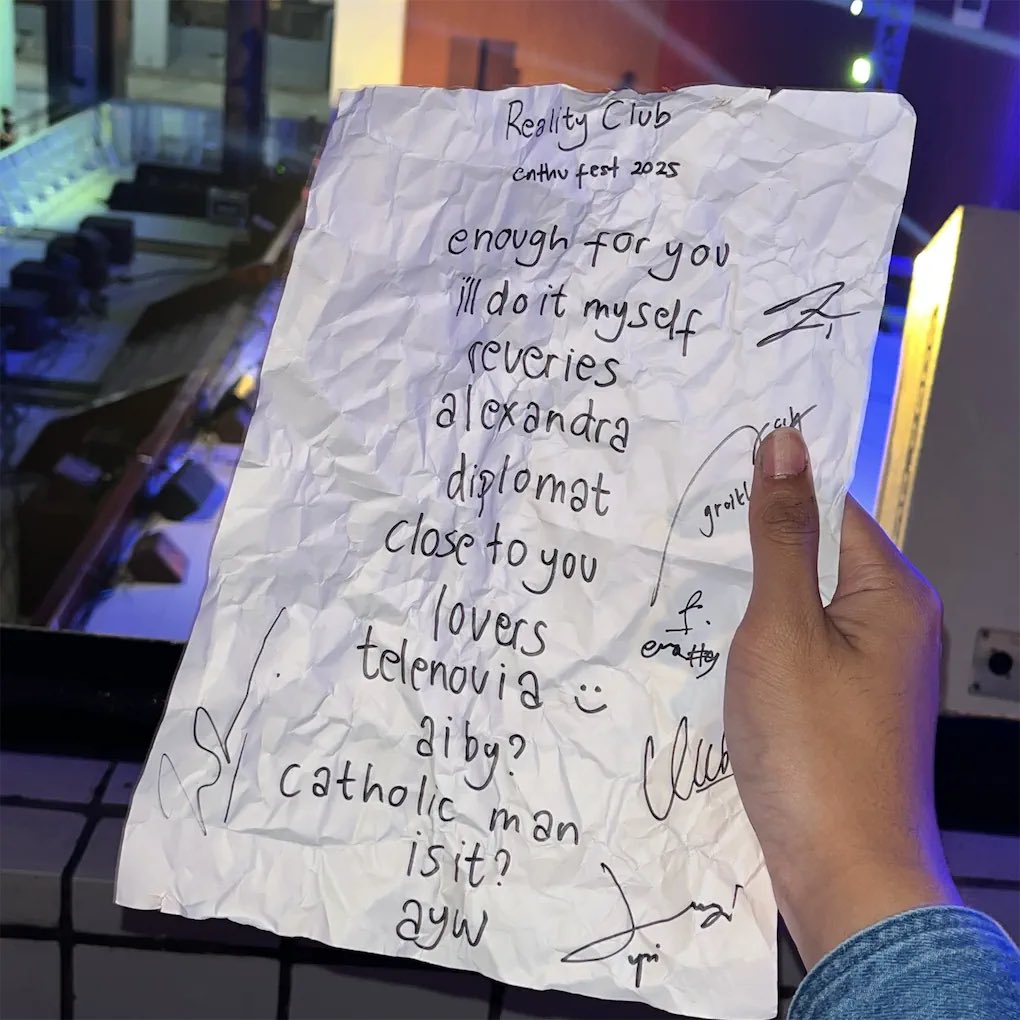 Reality Club
enthu fest 2025
enough for you
i'll do it myself
reveries
alexandra
diplomat
close to you
lovers
telenovia :)
aiby?
catholic man
is it?
ayw
f.
Club